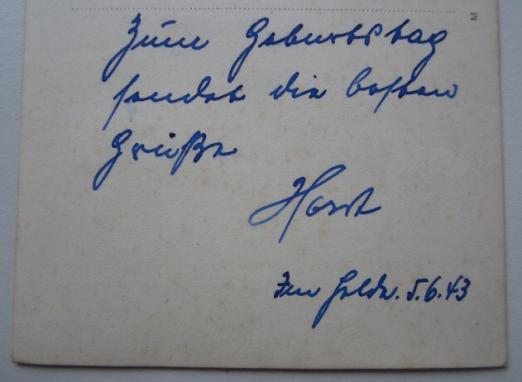 Zum Geburtstag
sendet die besten
Grüße
Horst
Im Felde. 5.6.43
M